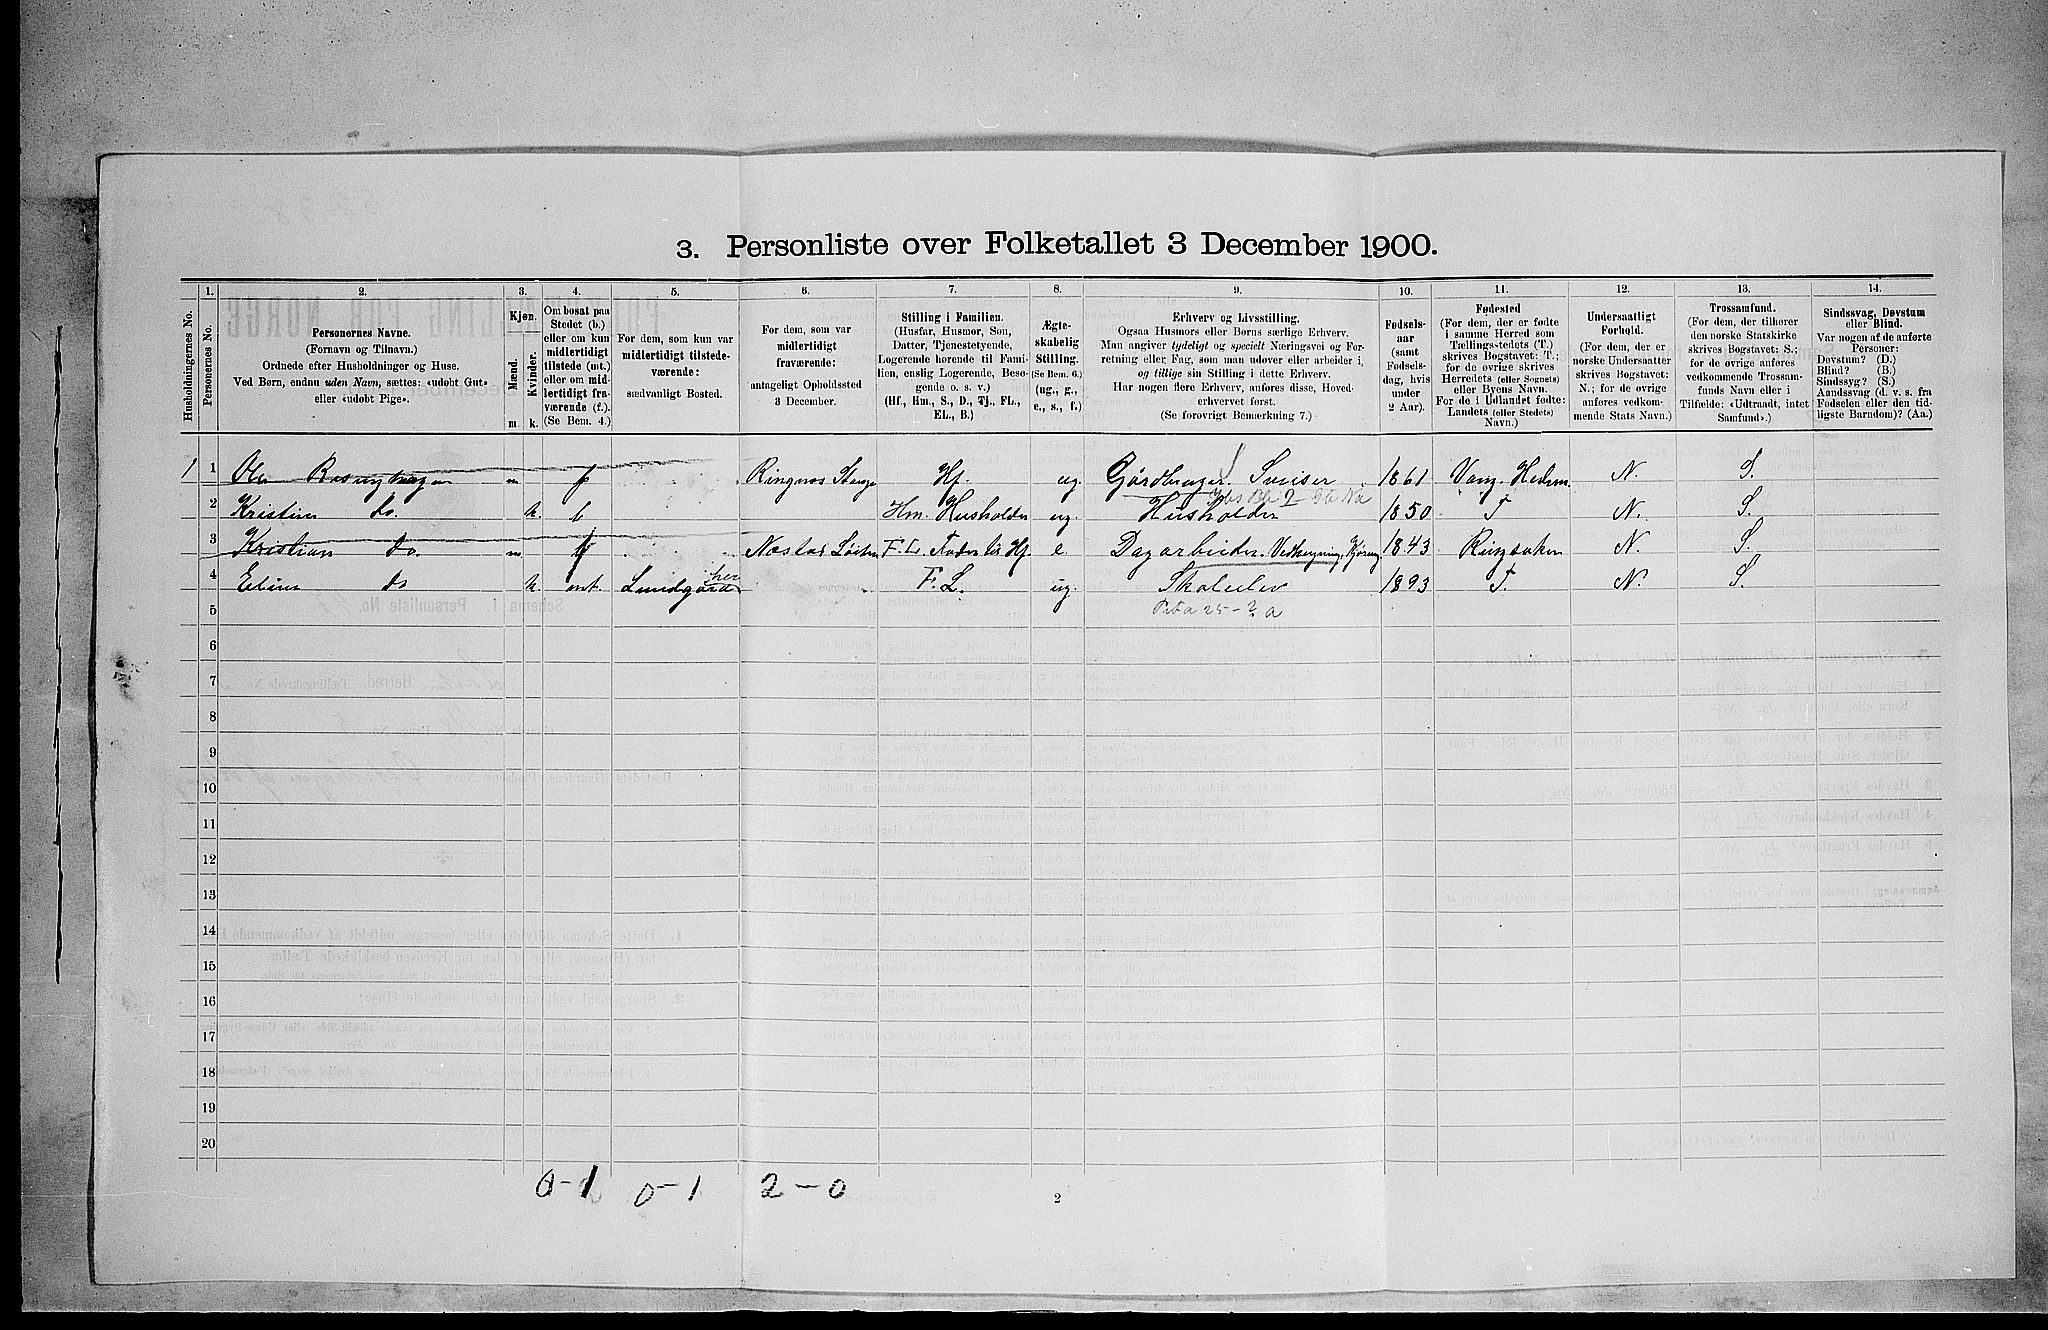 3. Personliste over Folketallet 3 December 1900.
Husholdningernes No.
1.
Personernes No.
2.
Personernes Navne.
(Fornavn og Tilnavn.)
Ordnede efter Husholdninger og Huse.
Ved Børn, endnu uden Navn, sættes: «udøbt Gut»
eller «udøbt Pige».
3.
Kjøn.
Mænd.
Kvinder.
m. k.
4.
Om bosat paa
Stedet (b.)
eller om kun
midlertidigt
tilstede (mt.)
eller om mid-
lertidigt fra-
værende (f.).
(Se Bem. 4.)
5.
For dem, som kun var
midlertidigt tilstede-
værende:
sædvanligt Bosted.
6.
For dem, som var
midlertidigt
fraværende:
antageligt Opholdssted
3 December.
7.
Stilling i Familien.
(Husfar, Husmor, Søn,
Datter, Tjenestetyende,
Logerende hørende til Fami-
lien, enslig Logerende, Besø-
gende o. s. v.)
(Hf., Hm., S., D., Tj., FL.,
EL., B.)
8.
Ægte-
skabelig
Stilling.
(Se Bem. 6.)
(ug., g.,
e., s., f.)
9.
Erhverv og Livsstilling.
Ogsaa Husmors eller Børns særlige Erhverv.
Man angiver tydeligt og specielt Næringsvei og For-
retning eller Fag, som man udøver eller arbeider i,
og tillige sin Stilling i dette Erhverv.
Har nogen flere Erhverv, anføres disse, Hoved-
erhvervet først.
(Se forøvrigt Bemærkning 7.)
10.
Fødsels-
aar
(samt
Fødsels-
dag, hvis
under
2 Aar).
11.
Fødested
(For dem, der er fødte
i samme Herred som
Tællings-stedets (T.)
skrives Bogstavet: T.;
for de øvrige skrives
Herredets (eller Sognets)
eller Byens Navn.
For de i Udlandet fødte:
Landets (eller Stedets)
Navn.)
12.
Undersaatligt
Forhold.
(For dem, der er
norske Undersaatter
skrives Bogstavet:
N.; for de øvrige
anføres vedkom-
mende Stats Navn.)
13.
Trossamfund.
(For dem, der tilhører
den norske Statskirke
skrives Bogstavet: S.;
for de øvrige anføres
vedkommende Trossam-
funds Navn eller i
Tilfælde: «Udtraadt, intet
Samfund».)
14.
Sindssvag, Døvstum
eller Blind.
Var nogen af de anførte
Personer:
Døvstum? (D.)
Blind? (B.)
Sindssyg? (S.)
Aandssvag (d. v. s. fra
Fødselen eller den tid-
ligste Barndom)? (Aa.)
1 1 m f Ringnes Stange Hf. ug. Gårdbruger. Sveiser 1861 Vang. Hedem. N. S.
2 Kristine do. k. b Hm. Husholder ug. Husholder 1850 T N. S.
3 Kristian do. m f Løiten F. L. Fader til Hf. e. Dagarbeider. Vedhugning, Kjøring 1843 Ringsaker N. S.
4 do k. mt. Lundgård her F. L. ug. Skoleelev 1893 T. N. S.
5
6
7
8
9
10
11
12
13
14
15
16
17
18
19
20
0-1 0-1 2-0
2